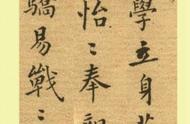 學立身
怡〻奉親
驕易戰〻